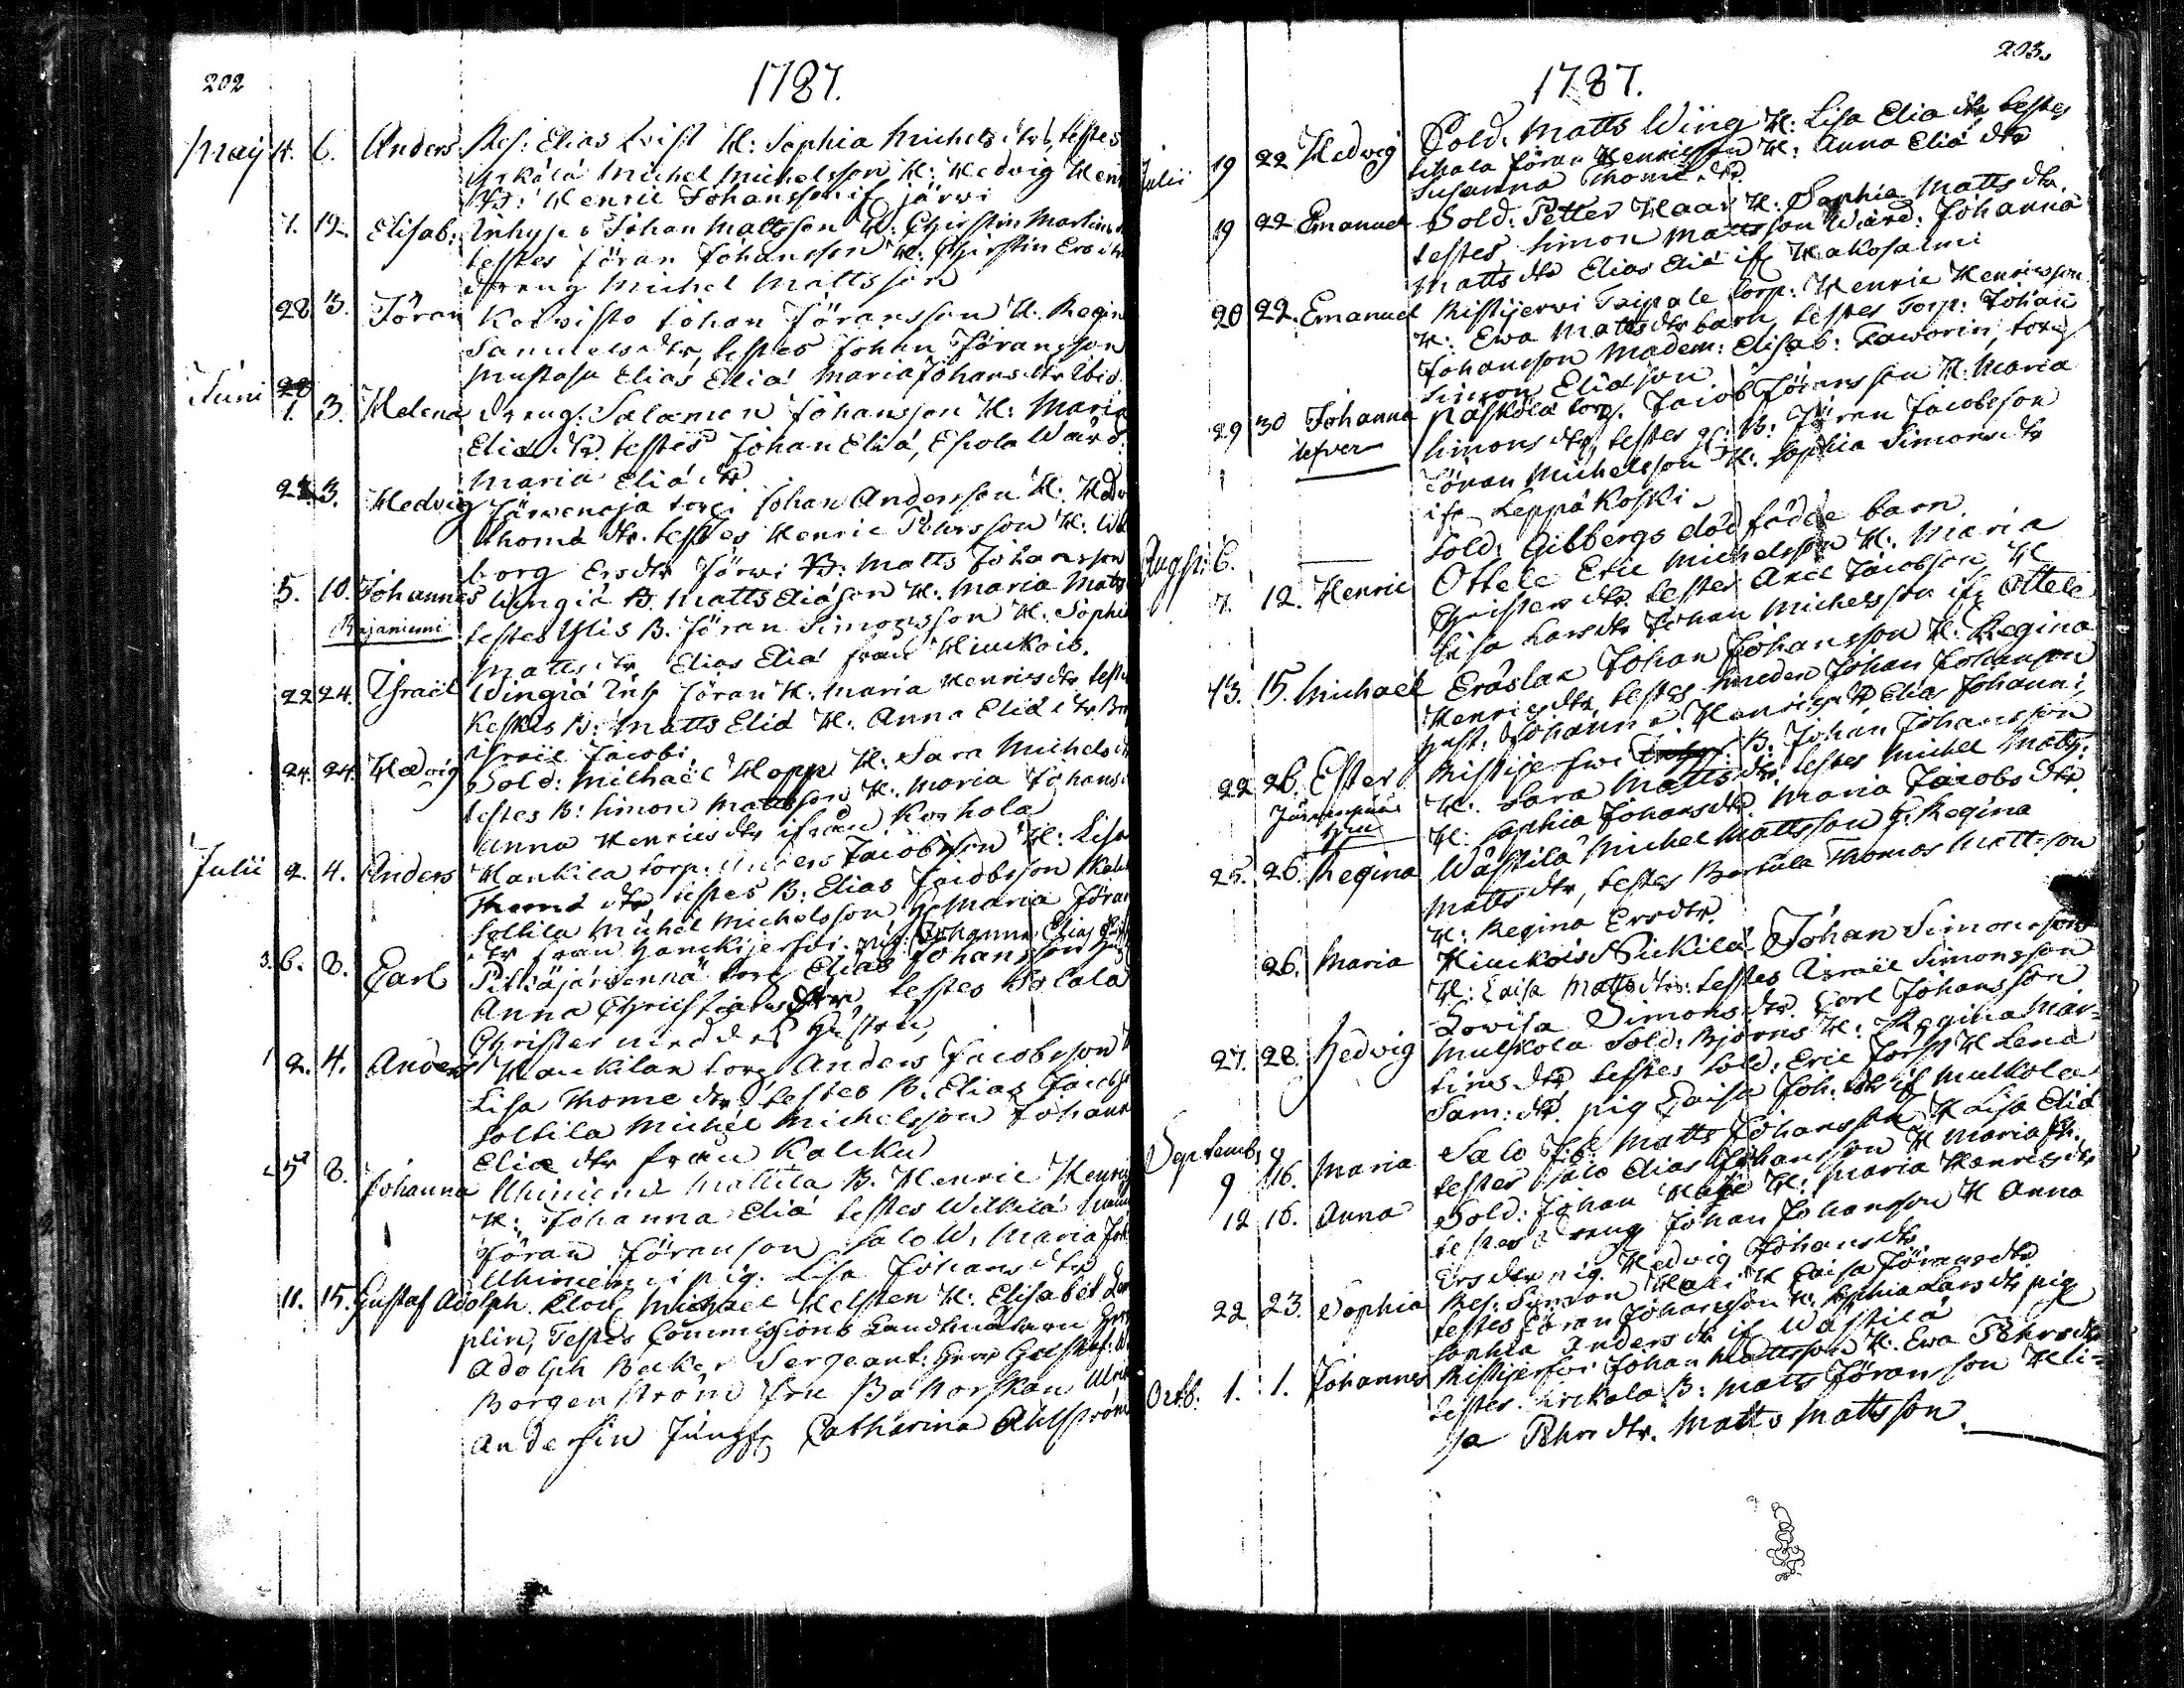 202
1787.
Maij 4. 6. Anders Res: Elias Qvist H: Sophia Michels dtr, testes
Michel Michelsson H: Hedvig Hen
B: Henric Johansson if järvi
7. 12. Elisab: Inhyses Johan Mattsson H: Christin Martins
testes Jöran Johansson H: Christin Ers dtr
dreng Michel Mattsson
28 3. Jöran Koivisto Johan Jöransson H. Regin
Samuels dtr, testes Johan Jöransson
Mustasu Elias Eliä Maria Johans dtr ibid.
Juni 1. 3. Helena dreng: Salomon Johansson H: Maria
Eliä dtr. testes Johan Eliä, Eskola Wärd:
Maria Eliä dtr
3. Hedvig Järvenoja torp: Johan Andersson H: Hedv
Thomä dtr. testes Henric Pehrsson H: Wal
borg Ersdtr Järvi B: Matts Johansson
5. 10. Johannes Wingiä B. Matts Eliäson H: Maria Matts
Rajaniemi testes Ylis B. Jöran Simonsson H: Sophia
Matts dtr. Elias Eliä från Hiuckois.
22 24. Israel Wingiä Inh Jöran H: Maria Henrics dtr test
Keskis B: Matts Eliä H: Anna Eliä dtr
israel Jacobi
24. 24. Hedvig Sold: Michael Hopp H: Sara Michels
testes B: Simon Mattsson H: Maria Johans
Anna Henrics dtr ifrån Korhola
Julii 2. 4. Anders Hankila torp: Anders Jacobsson H: Lisa
Thomä dtr testes B: Elias Jacobsson
Soltila Michel Michelsson H: Maria Jöran
dtr från Hanckijerfvi. pig: Johanna Elias
3. 6. 8. Carl Pitkäjärvenpä torp Elias Johansson H
Anna Christians dtr, testes
Christer med dess Hustru,
2. 4. Anders Hankilan torp Anders Jacobsson H
Lisa Thome dtr, testes B: Elias Jacobs
Soltila Michel Michelsson Johanna
Eliæ dtr från Kalcku
5 8. Johanna Uhiniemi Mattila B. Henric Henrics
H: Johanna Eliä testes Wilkilä
Jöran Jöranson Salo W. Maria Joh
Uhiniemi pig. Lisa Johans dtr
11. 15. Gustaf Adolph Klock Michael Helsten H: Elisabet
plin, Testes Commissions Landtmätaren Herr
Adolph Becker Sergeant: Herr Gustaf: W
Borgenström fru Ulrica
Andersin Jungfr Catharina Ahlström
203.
1787.
Julii 19 22 Hedvig Sold: Matts Wing H: Lisa Eliæ dtr testes
Sikala Jöran Henricsson H: Anna Eliä dtr
Susanna Thome dtr.
19 22 Emanuel Sold: Petter Haar H: Sophia Matts dtr.
testes Simon Mattsson Wärd: Johanna
Matts dtr Elias Eliä if Hakosalmi
20 22. Emanuel Ristijerwi Taipale torp: Henric Henricsson
H: Ewa Matts dtr barn, testes Torp: Johan
Johansson Madem: Elisab: Faworin, torp
Simon Eliäson
29 30 Johanna Päskölä torp. Jacob Jöransson H: Maria
lefver Simons dtr, testes B: Jöran Jacobsson
Jöran Michelsson H: Sophia Simons dtr
ifr Leppäkoski.
Augsti 6. Sold: Gibbergs dödfödde barn.
7. 12. Henric Ottele Eric Michelsson H: Maria
Christers dtr. testes Axel Jacobsson H
Lisa Lars dtr Johan Michelsson ifr Ottele
13. 15. Michael Eräslax Johan Johansson H: Regina
Henrics dtr, testes smeden Johan Johansson
Hust: Johanna Henrics dtr Elias Johanni,
22 26. Ester Ristijerfwi B: Johan Johansson
Järvenpää H: Sara Matts dtr. testes Michel Matts:
H: Sophia Johans dtr. Maria Jacobs dtr.
25. 26. Regina Wästilä Michel Mattsson H: Regina
Matts dtr, testes Bertula Thomas Mattsson
H: Regina Ersdtr.
26. Maria Hiuckois Nickilä Johan Simonsson
H: Caisa Matts dtr: testes Israel Simonsson
Lovisa Simons dtr. Carl Johansson
27. 28. Hedvig Mulkola Sold: Björns H: Regina Mar-
tins dtr, testes Sold: Eric Forss H Lena
Sam: dtr. pig Caisa Joh. dtr if Mulkola
Septemb: 9 16. Maria Salo Matts Johansson H Lisa Eliä
testes Salo Elias Johansson H Maria Er.
12 16. Anna Sold: Johan H: Maria Henrics dtr
testes dreng Johan Johansson H Anna
Ers dtr pig. Hedvig Johans dtr.
22 23. Sophia Res: Simon H Caisa Jörans dtr
testes Jöran Johansson H: Sophia Lars dtr pig
Sophia Anders dtr if Wästilä
Octb: 1. 1. Johannes Ristijerfvi Johan Mattsson H: Ewa Pehrs dtr
testes Kirckola B: Matts Jöransson H: Li-
sa Pehrs dtr. Matts Mattsson.